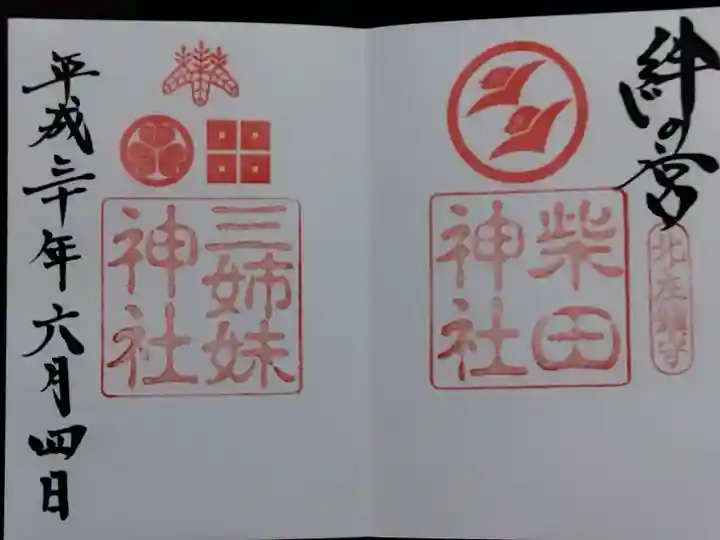 絆の宮
北庄鎮守
柴田
神社
三姉妹
神社
平成三十年六月四日